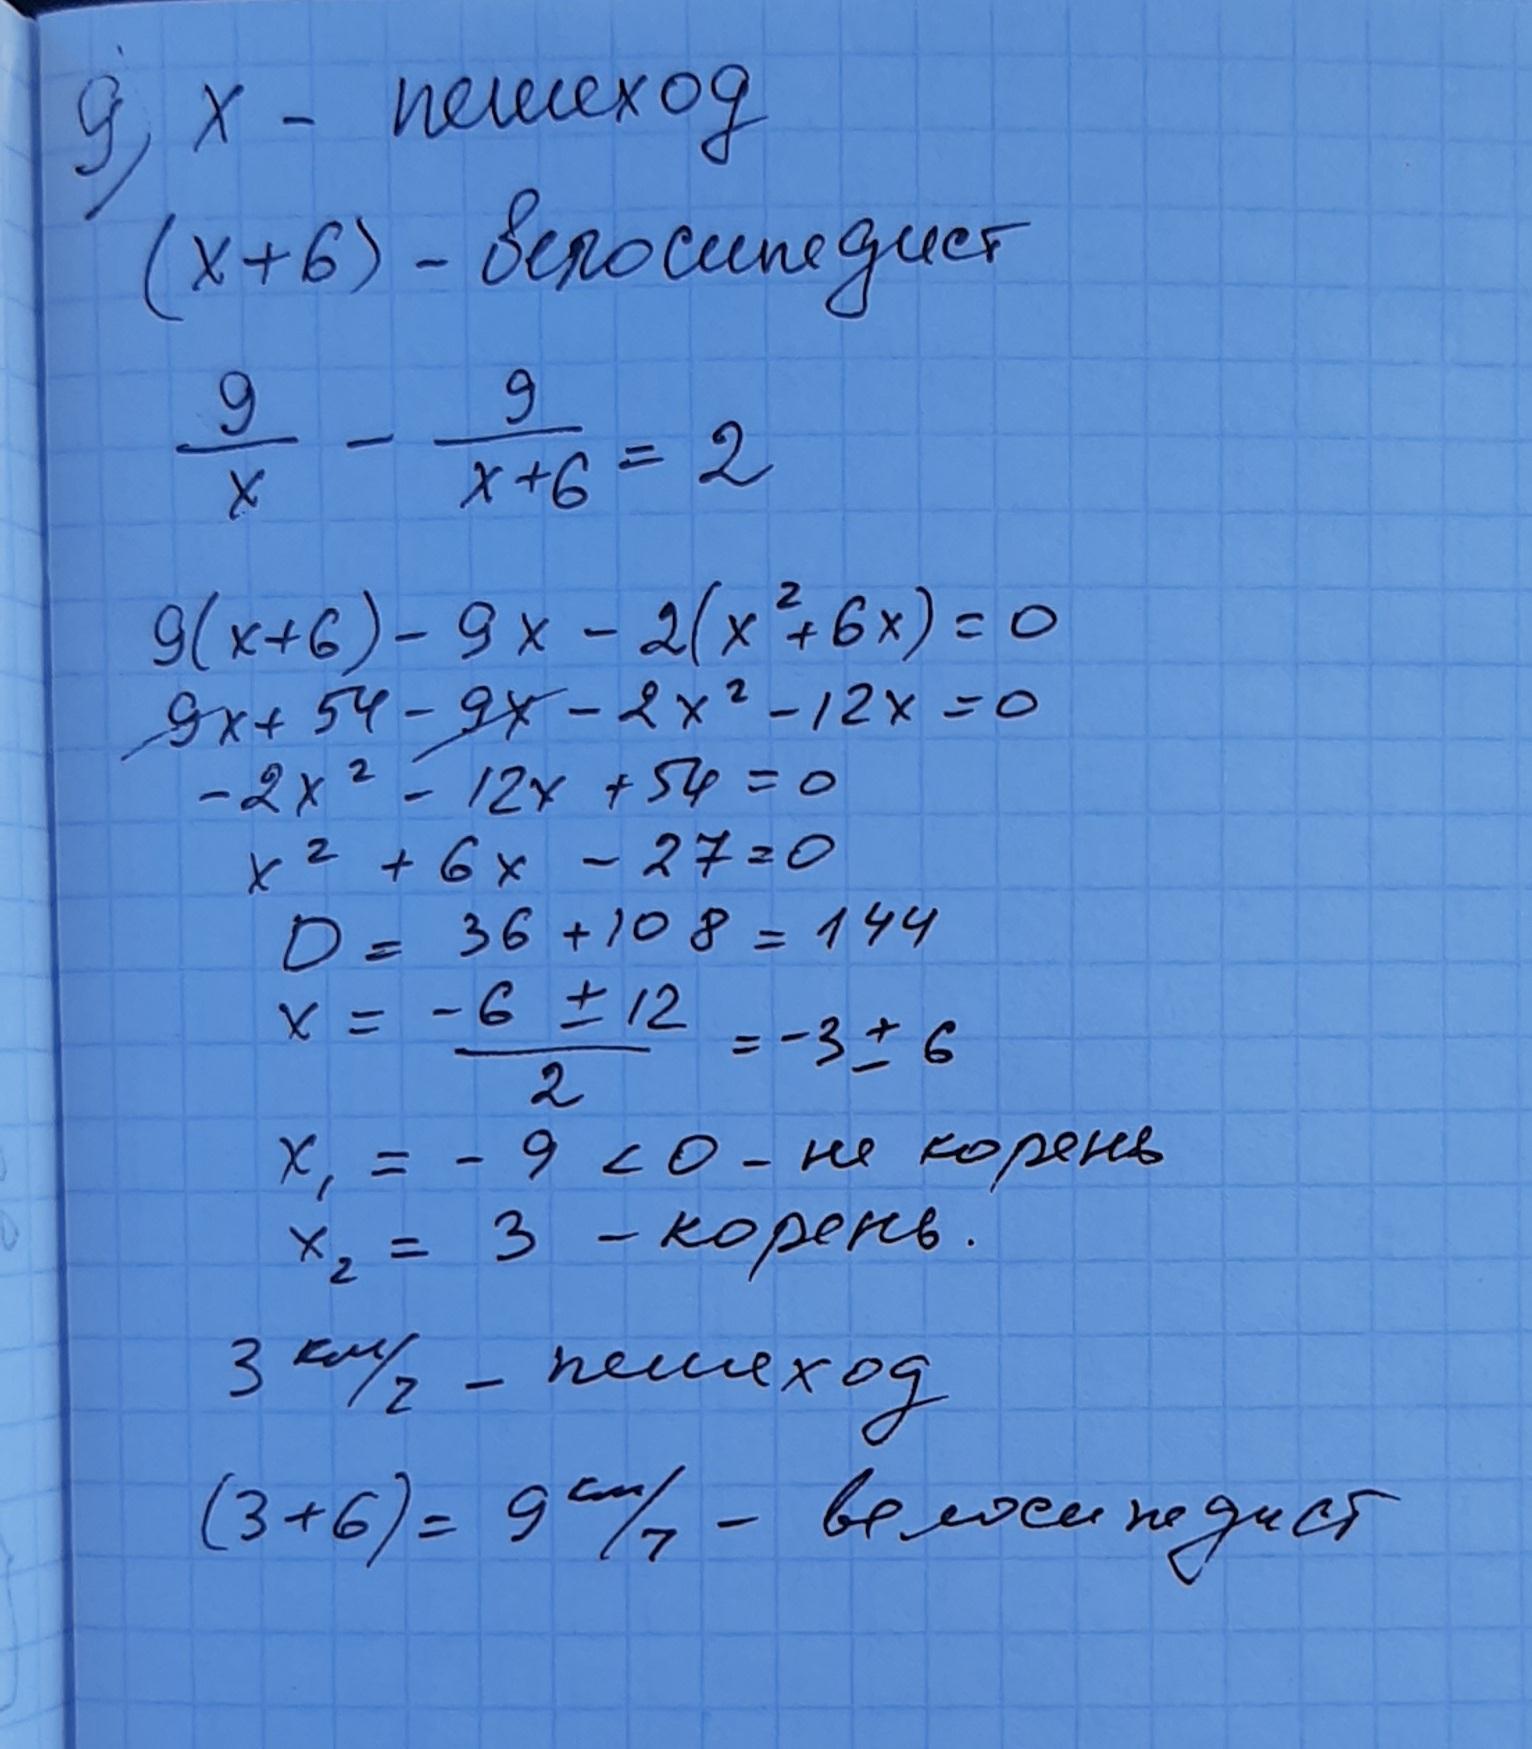 9) x - пешеход
(x+6) - велосипедист
9/x - 9/(x+6) = 2
9(x+6) - 9x - 2(x²+6x) = 0
9x + 54 - 9x - 2x² - 12x = 0
-2x² - 12x + 54 = 0
x² + 6x - 27 = 0
D = 36 + 108 = 144
x = (-6 ± 12)/2 = -3 ± 6
x₁ = -9 < 0 - не корень
x₂ = 3 - корень.
3 км/г - пешеход
(3+6) = 9 км/ч - велосипедист